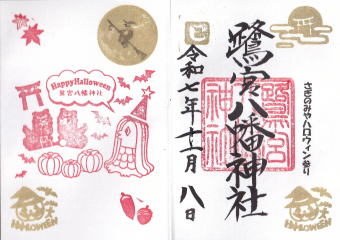 Happy Halloween
鷺宮八幡神社
HALLOWEEN
さぎのみやハロウィン参り
鷺宮八幡神社
鷺宮
神社
令和七年十一月八日
HALLOWEEN